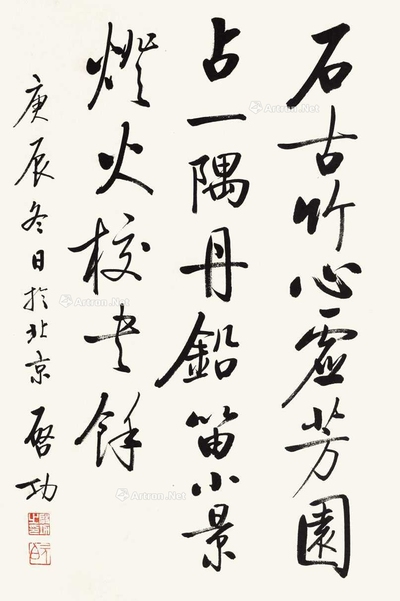 石古竹心虛芳園
占一隅丹鉛留小景
燈火校書餘
庚辰冬日於北京 啓功
Artron.Net